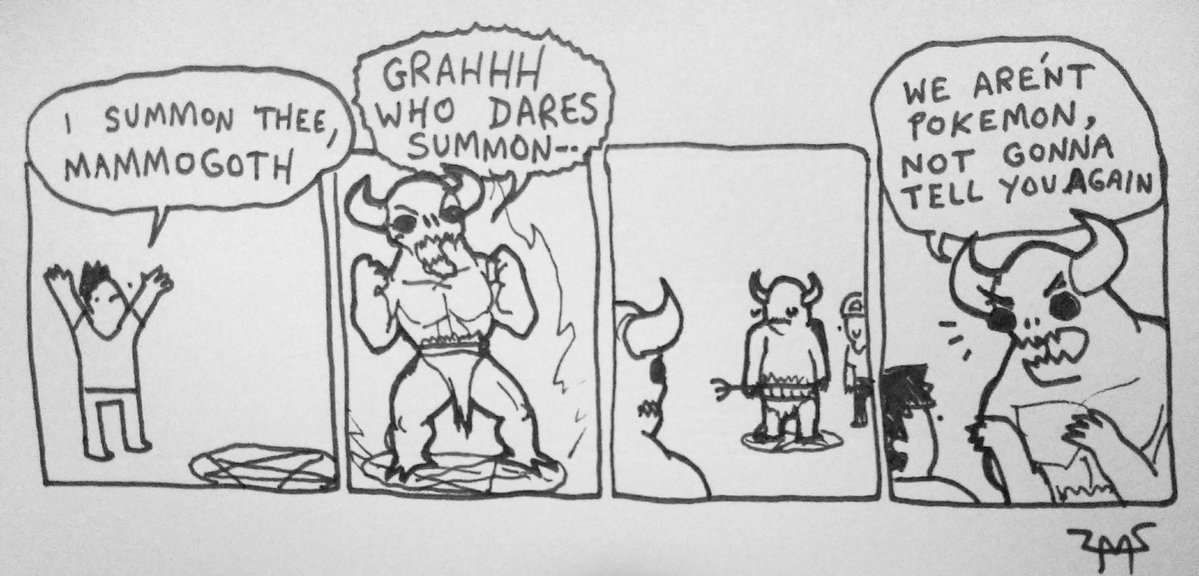 I SUMMON THEE,
MAMMOGOTH
GRAHHH
WHO DARES
SUMMON--
WE ARE'NT
POKEMON,
NOT GONNA
TELL YOU AGAIN